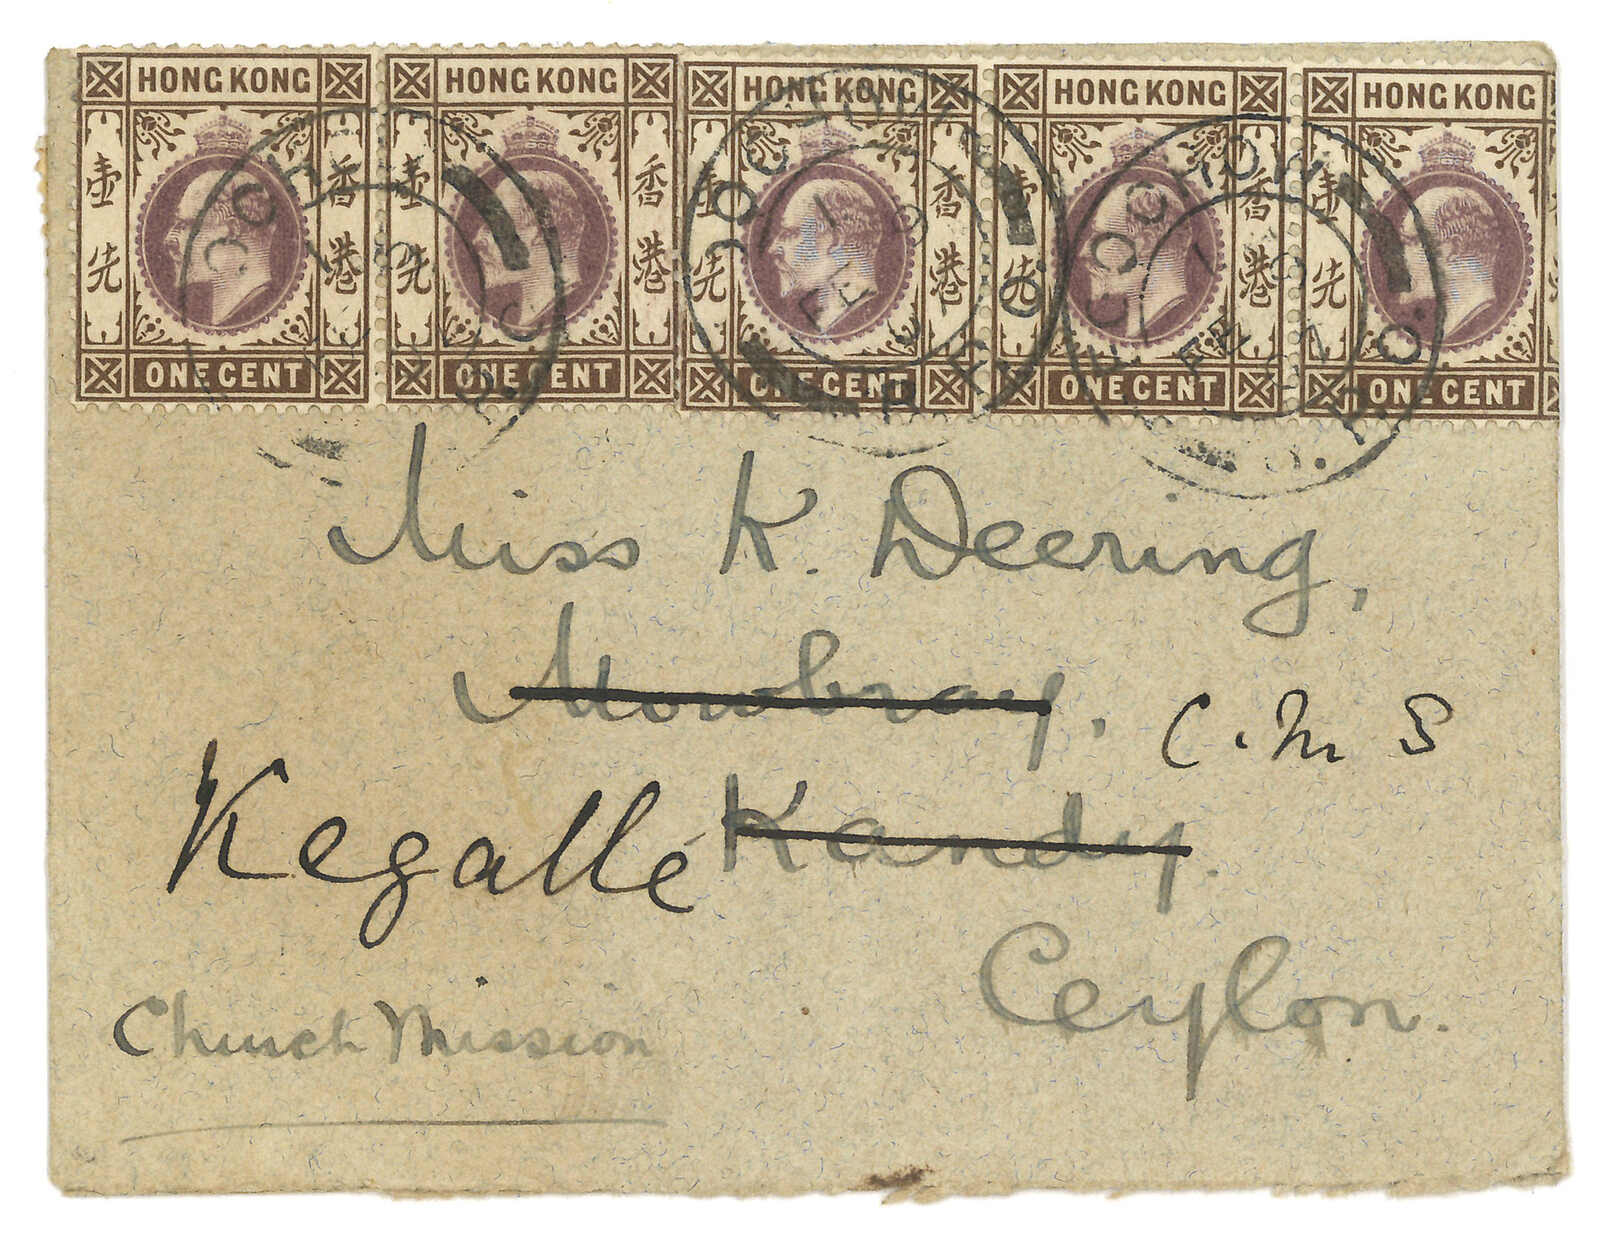 HONG KONG HONG KONG HONG KONG HONG KONG HONG KONG
壹先 香港 壹先 香港 壹先 香港 壹先 香港 壹先
ONE CENT ONE CENT ONE CENT ONE CENT ONE CENT
FOOCHOW FOOCHOW
B.P.O. B.P.O.
1 FE 07
Miss K. Deering,
Mowbray,
C.M S
Kegalle Kandy.
Ceylon.
Church Mission